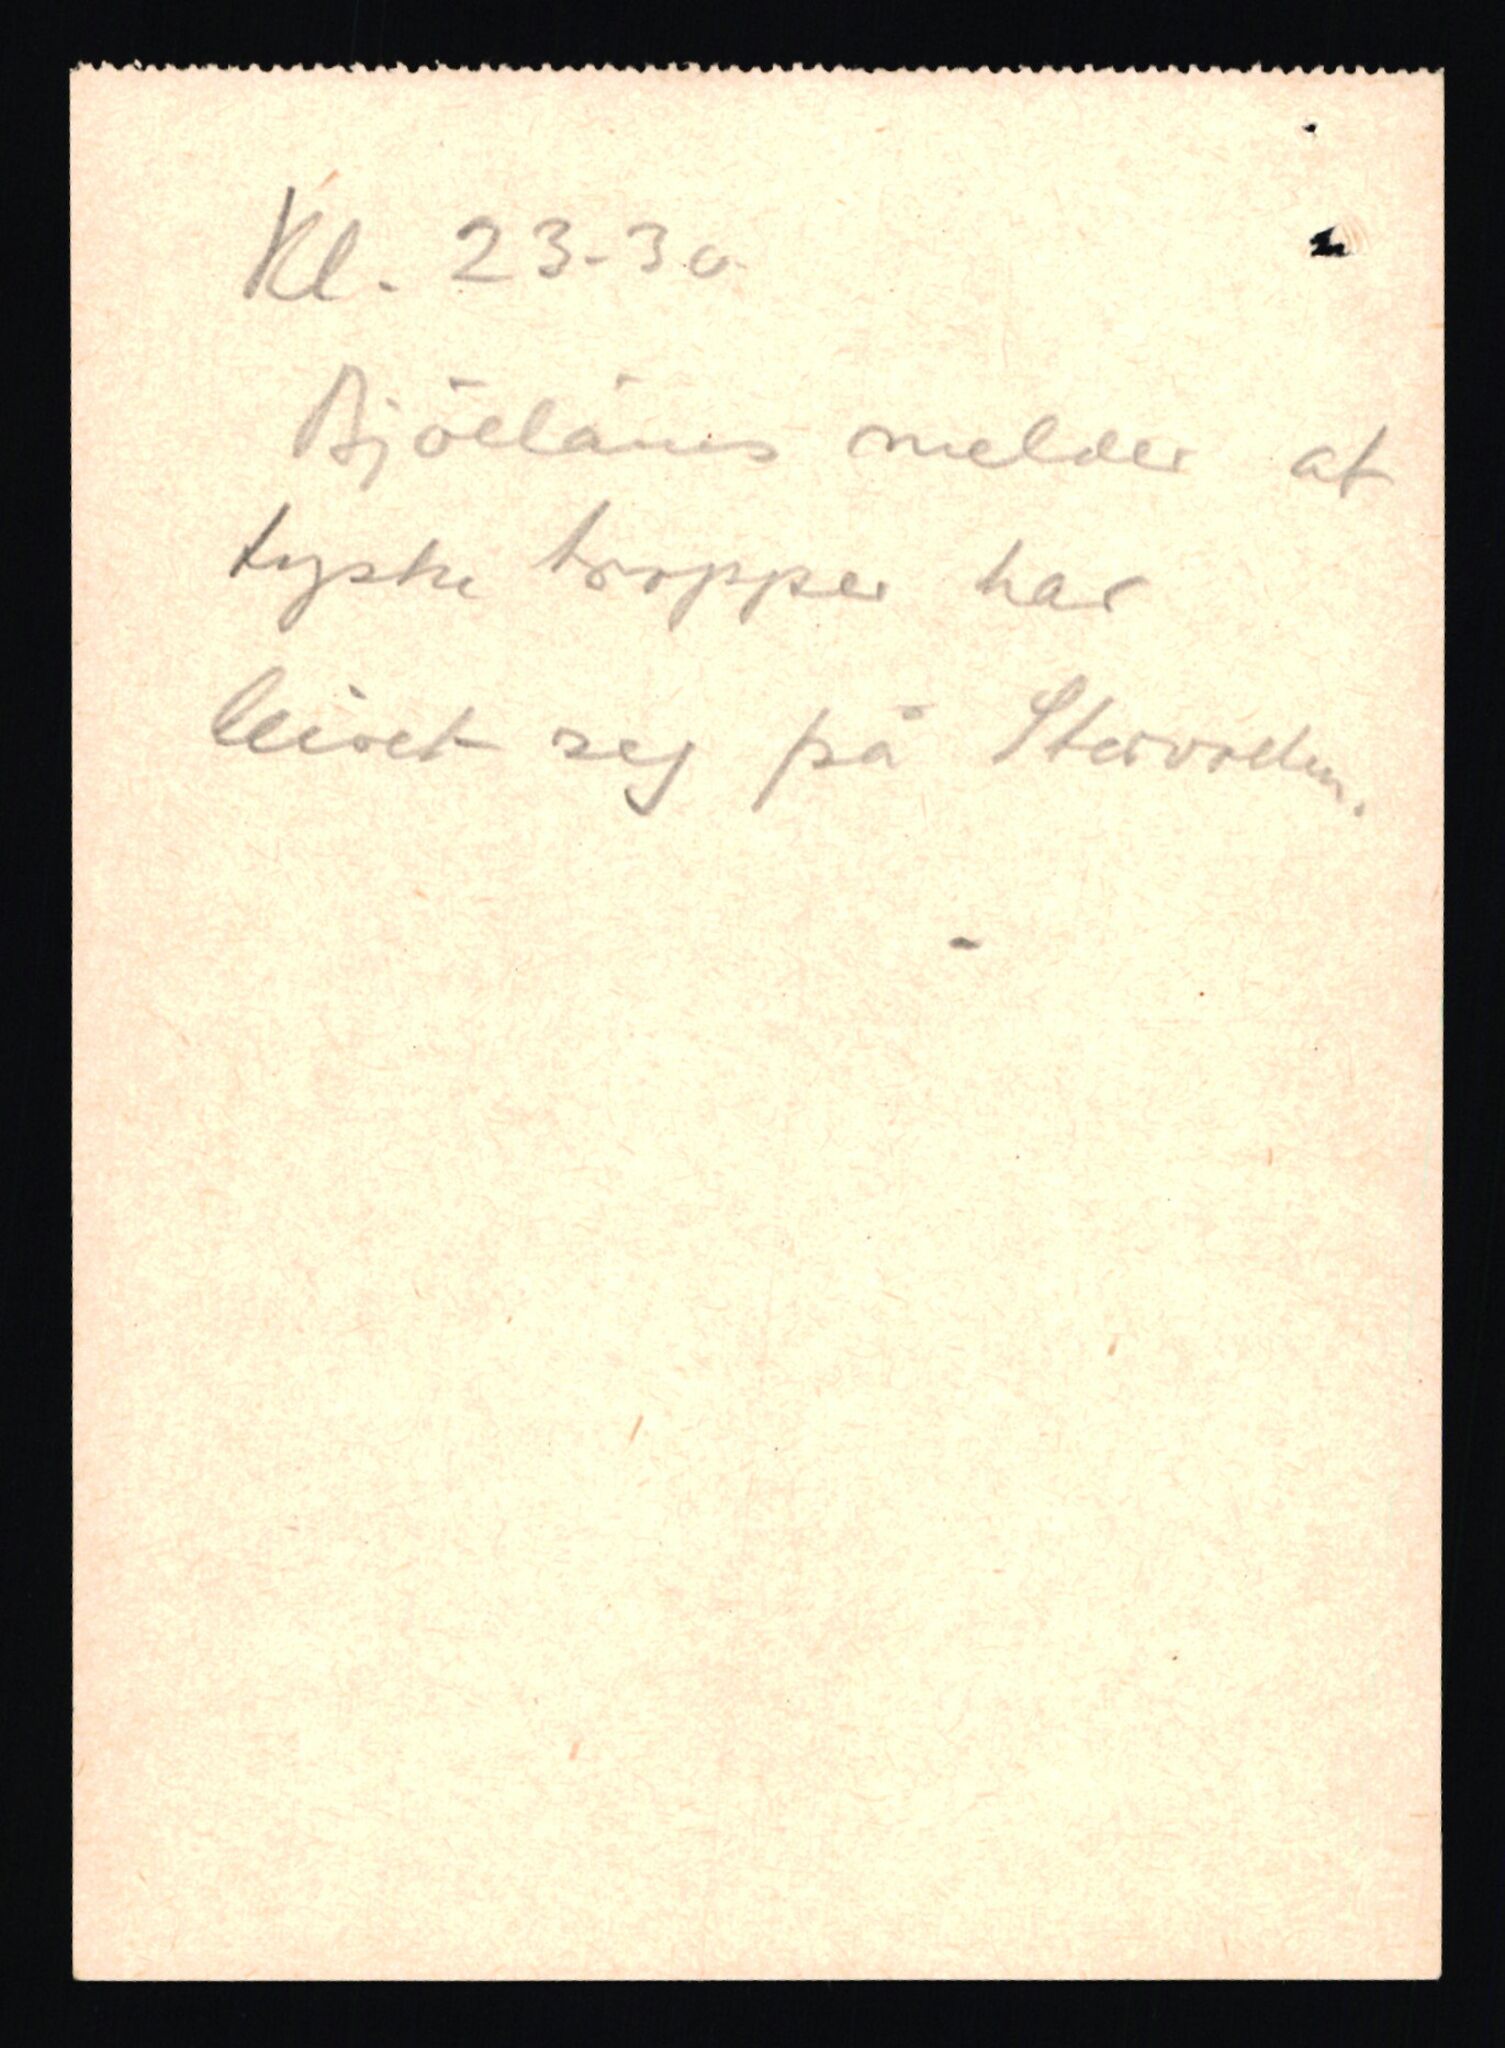 Kl. 23-30
Bjöllånes melder at
tyske tropper har
leiret seg på Storvolden.